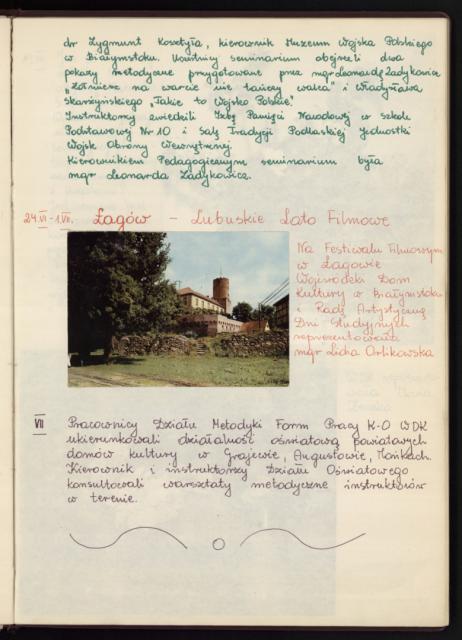 dr Zygmunt Kosztyła, kierownik Muzeum Wojska Polskiego
w Białymstoku. Uczestnicy seminarium obejrzeli dwa
pokazy metodyczne przygotowane przez mgr Leonardę Zadykowicz
„Żołnierze na warcie nie tańczą walca" i Władysława
Skarżyńskiego „Takie to Wojsko Polskie".
Instruktorzy zwiedzili Izbę Pamięci Narodowej w szkole
Podstawowej Nr 10 i Salę Tradycji Podlaskiej Jednostki
Wojsk Obrony Wewnętrznej.
Kierownikiem Pedagogicznym seminarium była
mgr Leonarda Zadykowicz.
24.VI - 1.VII. Łagów - Lubuskie Lato Filmowe
Na Festiwalu Filmowym
w Łagowie
Wojewódzki Dom
Kultury w Białymstoku
i Radę Artystyczną
Dni Studyjnych
reprezentowała
mgr Lidia Orlikowska
VII Pracownicy Działu Metodyki Form Pracy K-O WDK
ukierunkowali działalność oświatową powiatowych
domów kultury w Grajewie, Augustowie, Mońkach.
Kierownik i instruktorzy Działu Oświatowego
konsultowali warsztaty metodyczne instruktorów
w terenie.